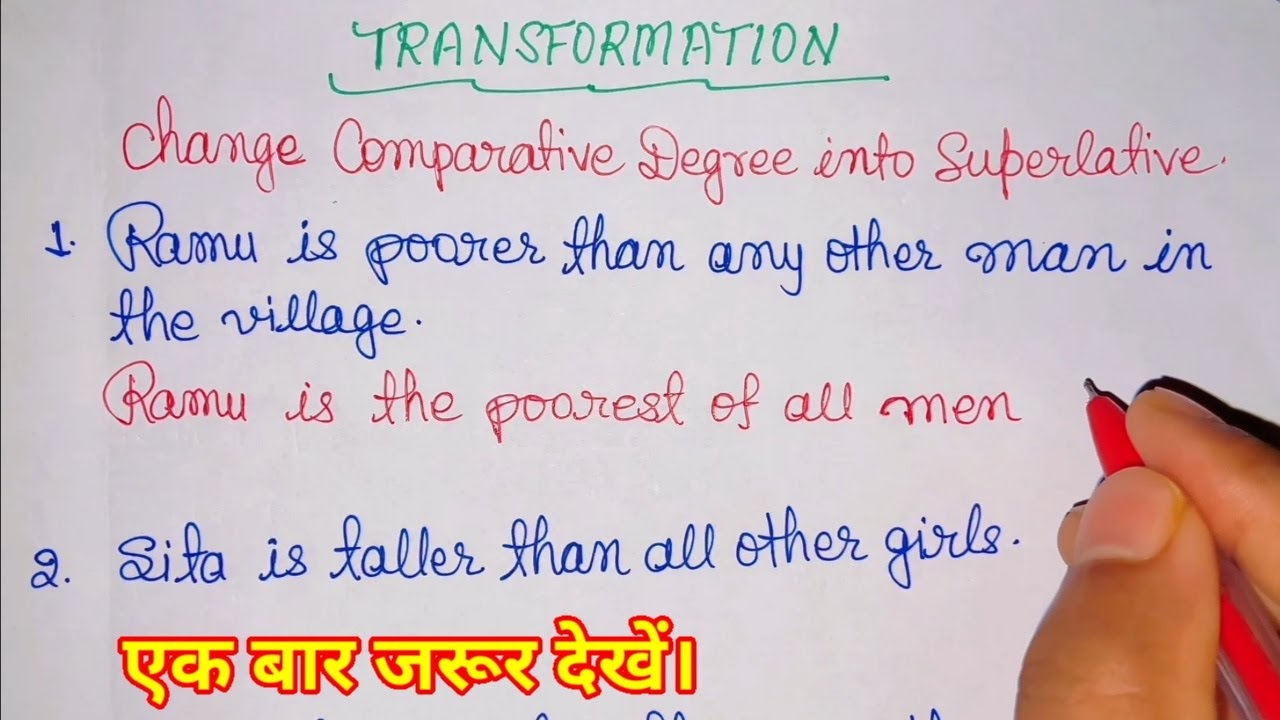 TRANSFORMATION
Change Comparative Degree into Superlative.
1. Ramu is poorer than any other man in
the village.
Ramu is the poorest of all men
2. Sita is taller than all other girls.
एक बार जरूर देखें।